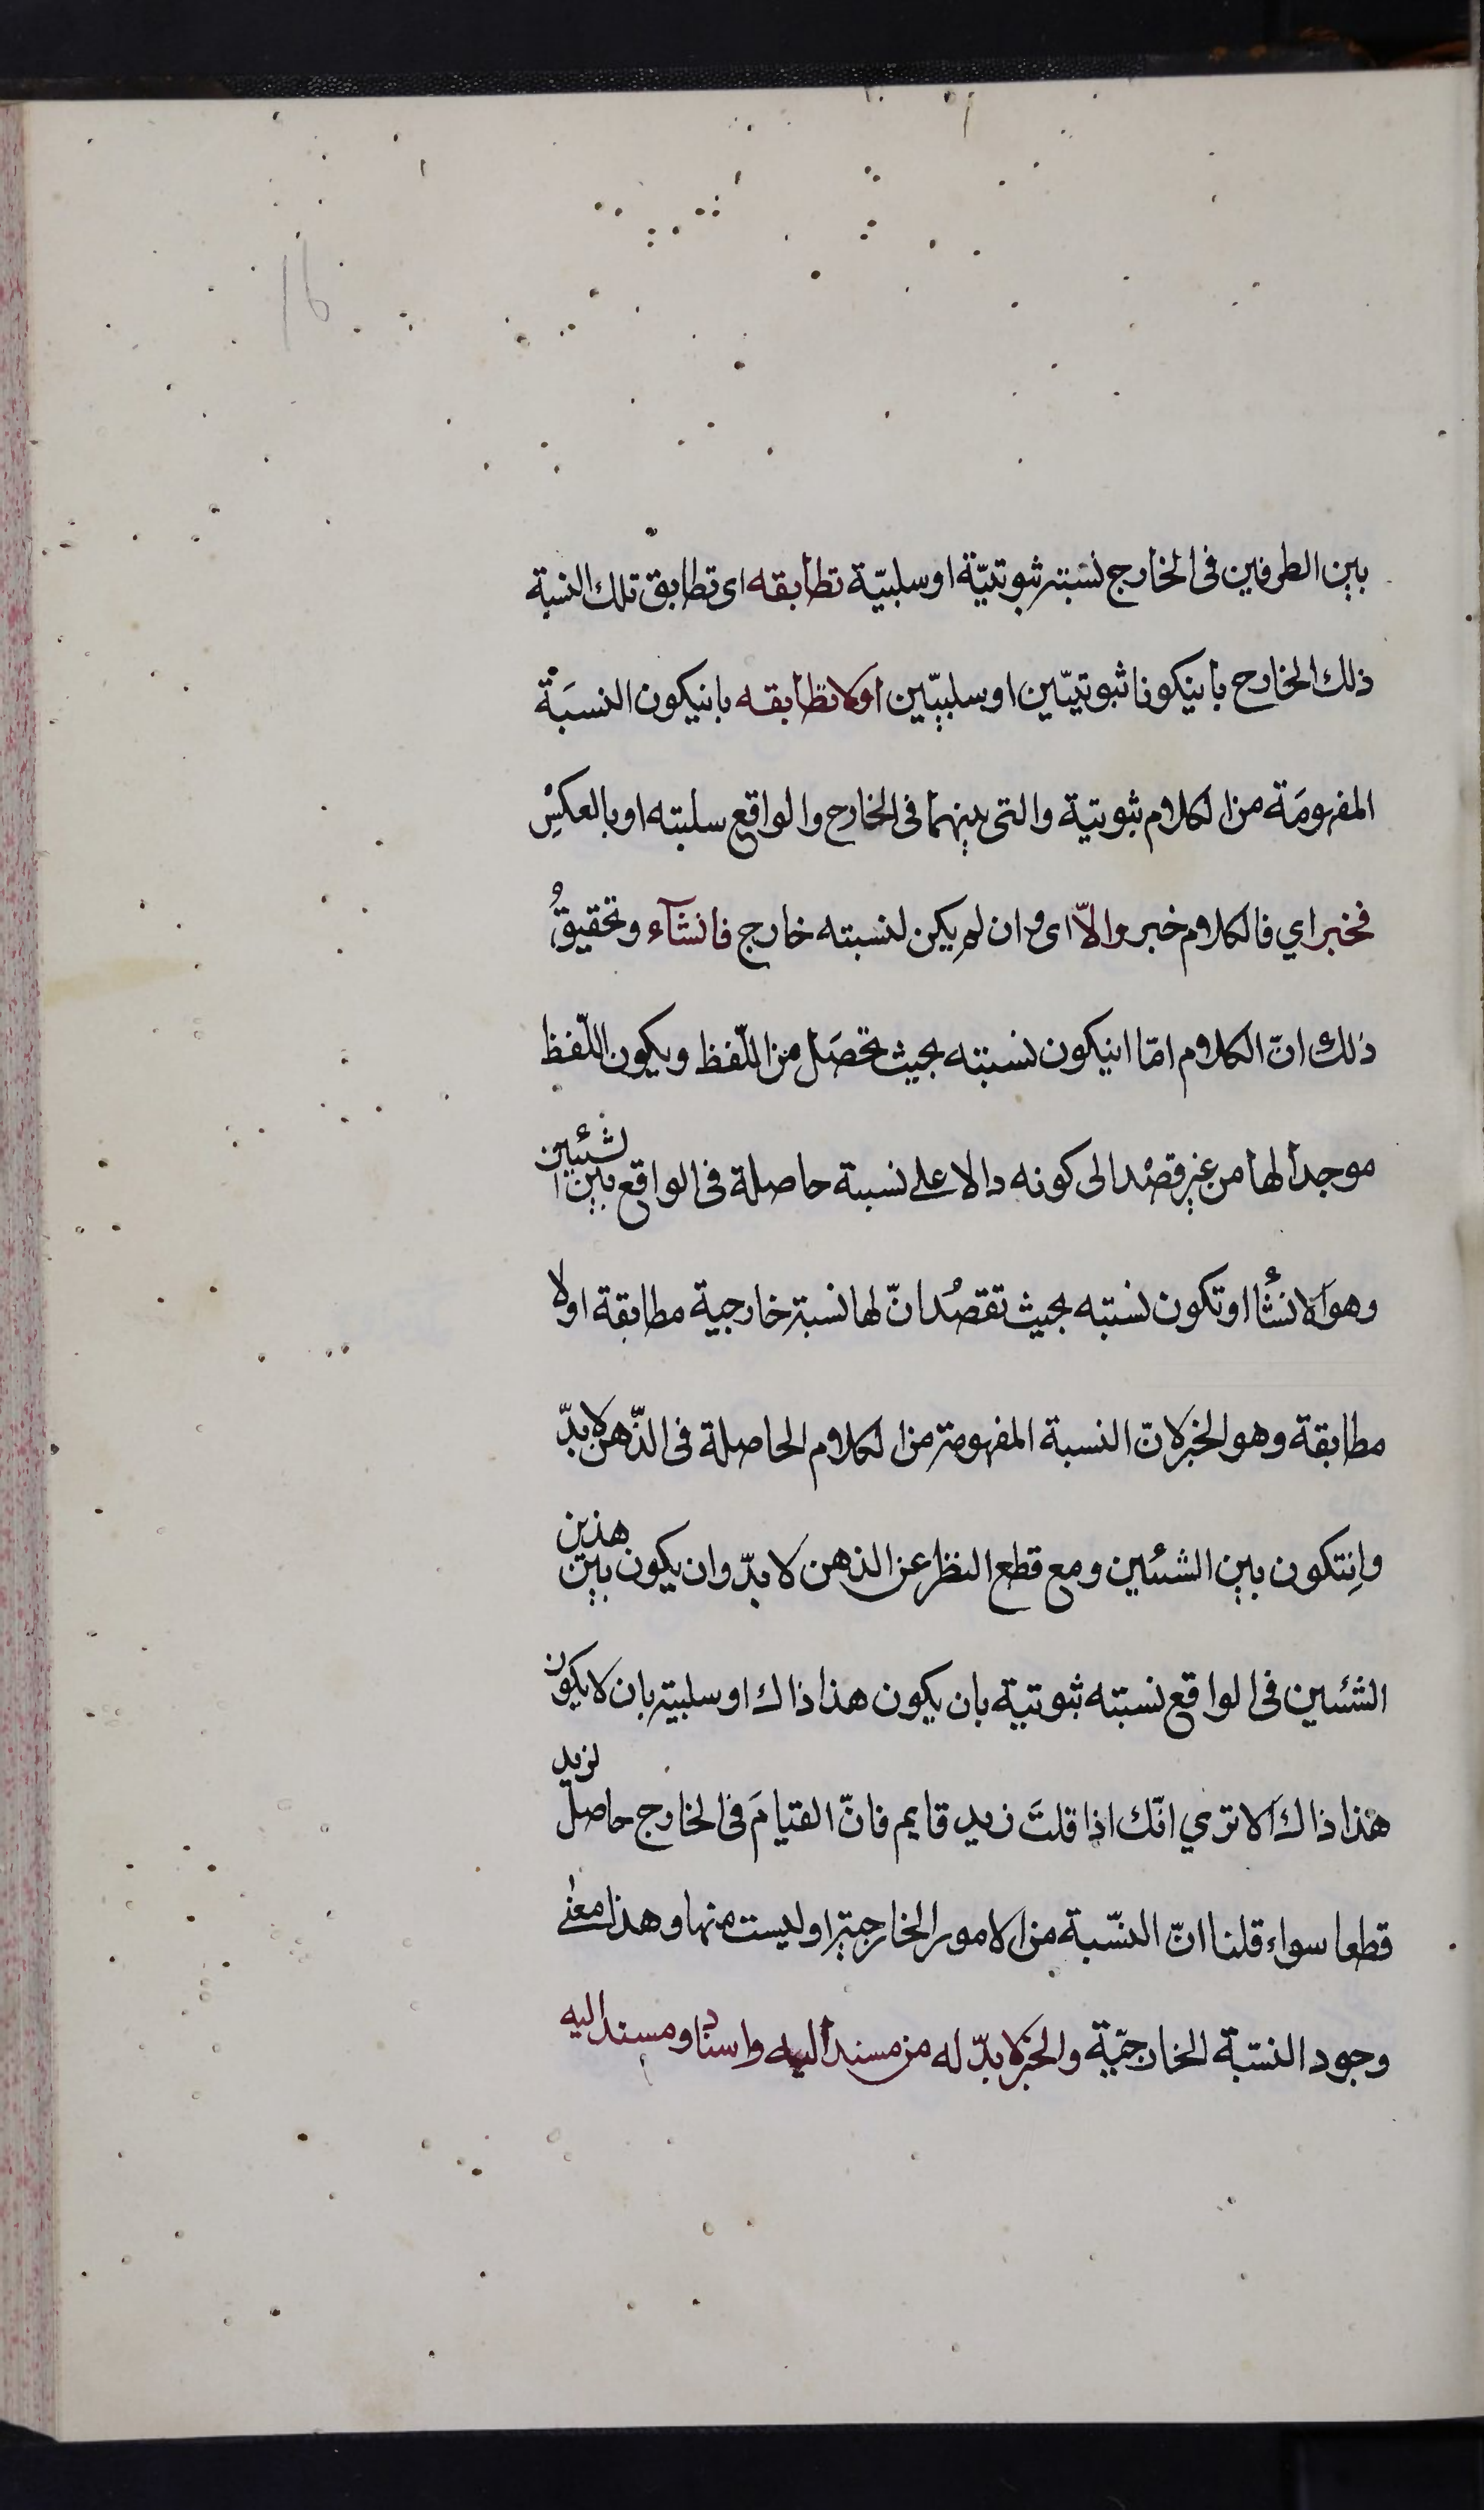 16
بين الطرفين فى الخارج نسبة ثبوتيّة او سلبيّة تطابقه اى تطابق تلك النسبة
ذلك الخارج بانيكونا ثبوتيّين او سلبيّين اولا تطابقه بانيكون النسبَة
المفهومَة من الكلام ثبوتية والتى بينهما فى الخارج والواقع سلبيته او بالعكسِ
فخبر اي فالكلام خبر والّا اى وان لم يكن لنسبته خارج فانشآء وتحقيقُ
ذلك انّ الكلام امّا انيكون نسبته بحيث تحصَل من اللّفظ ويكون اللّفظ
موجداً لها من غير قصْد الى كونه دالا على نسبة حاصلة فى الواقع بين الشئيين
وهو الانشأ او تكون نسبته بحيث تقصُد انّ لها نسبة خارجية مطابقة اولا
مطابقة وهو الخبر لانّ النسبة المفهومة من الكلام الحاصلة فى الذّهن لابدّ
وانتكون بين الشئين ومع قطع النظر عن الذهن لا بدّ وان يكون بين هذين
الشئين فى الواقع نسبته ثبوتية بان يكون هذا ذاك او سلبية بان لا يكون
هذا ذاك الا تري انّك اذا قلتَ زيد قايم فانّ القيامَ فى الخارج حاصل لزيد
قطعا سواء قلنا انّ النسّبة من الامور الخارجية او ليست منها وهذا معنى
وجود النسّبة الخارجيّة والخبر لابدّ له من مسند اليه واسناد ومسند اليه